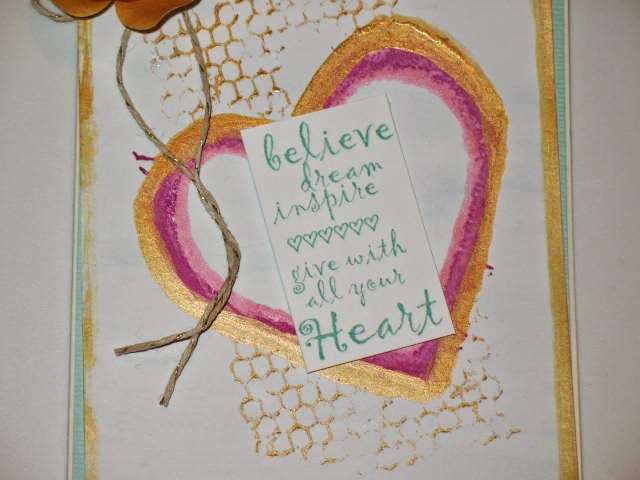 believe
dream
inspire
♡♡♡♡♡♡
give with
all your
Heart